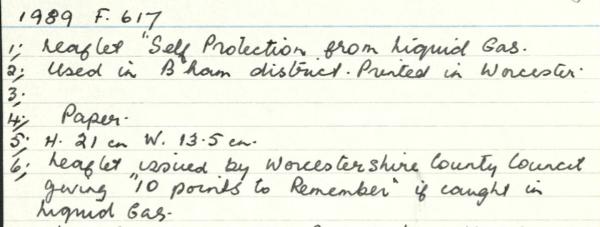 1989 F. 617
1; Leaflet "Self Protection from Liquid Gas.
2; Used in B'ham district. Printed in Worcester.
3;
4; Paper.
5; H. 21 cm W. 13.5 cm.
6; Leaflet issued by Worcestershire County Council
giving "10 points to Remember" if caught in
Liquid Gas.